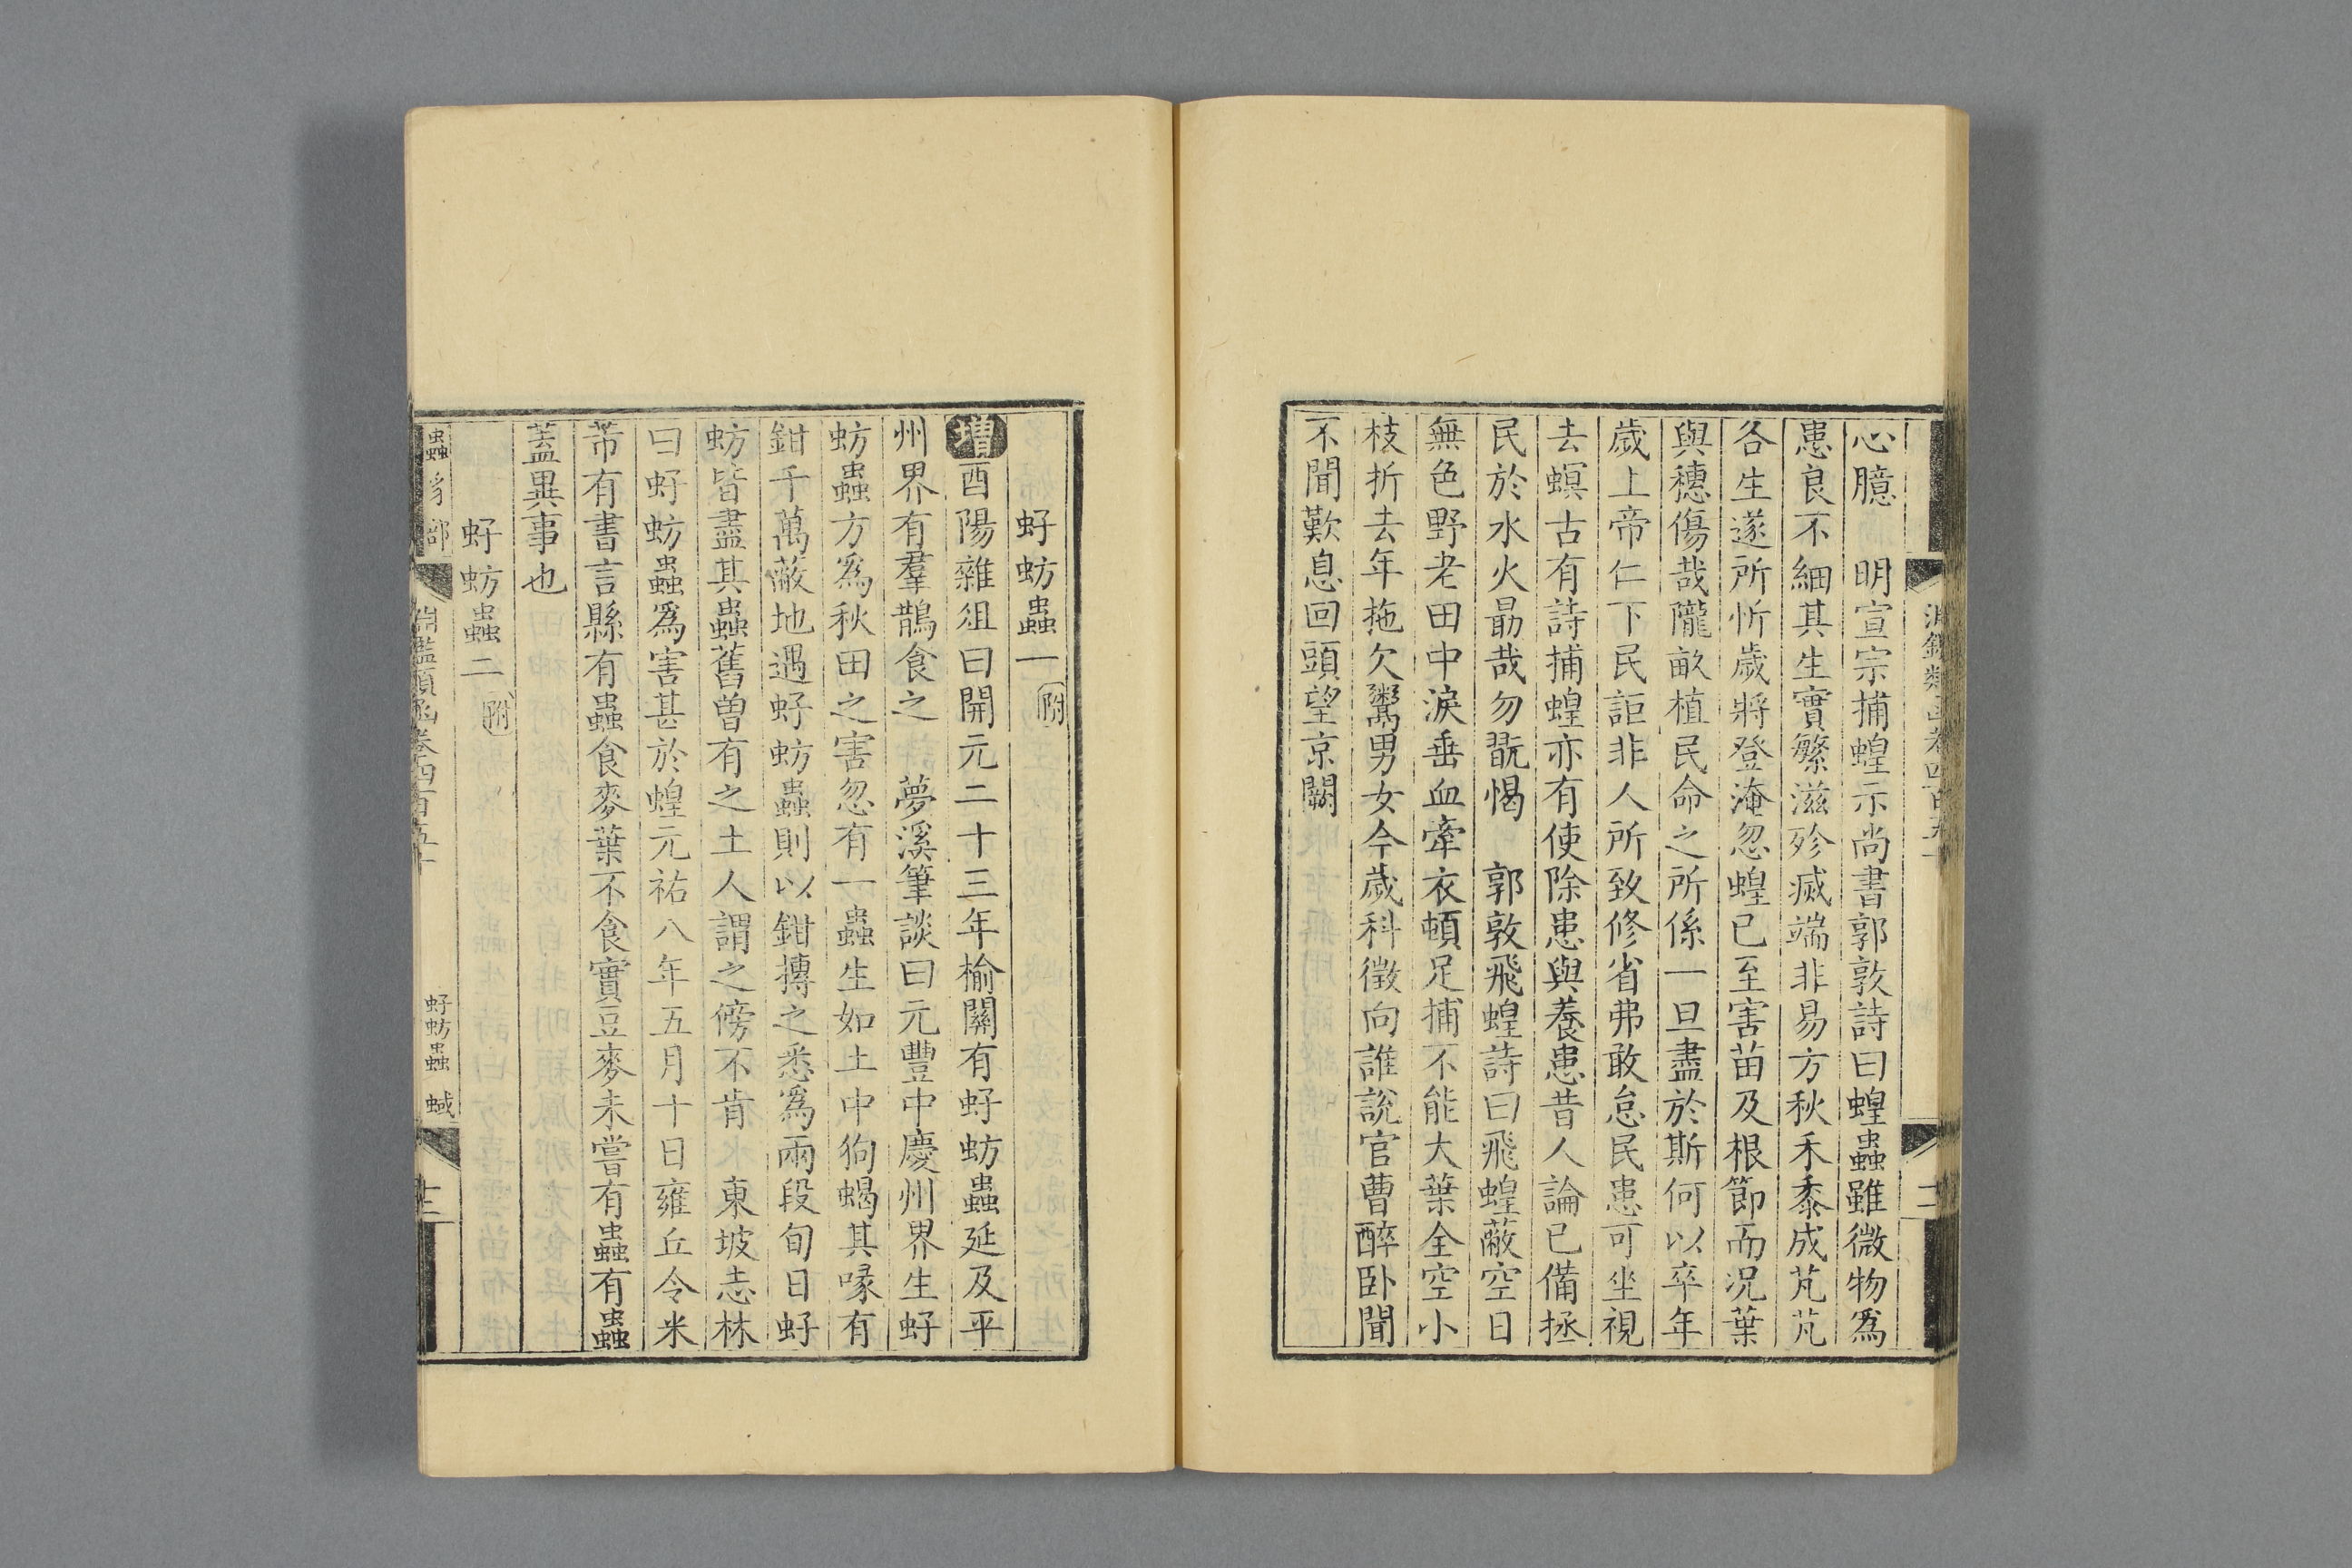 心臆　明宣宗捕蝗示尚書郭敦詩曰蝗蟲雖微物爲
患良不細其生實繁滋殄滅端非易方秋禾黍成芃芃
各生遂所忻歲將登淹忽蝗已至害苗及根節而况葉
與穗傷哉隴畝植民命之所係一旦盡於斯何以卒年
歲上帝仁下民詎非人所致修省弗敢怠民患可坐視
去螟古有詩捕蝗亦有使除患與養患昔人論已備拯
民於水火勗哉勿翫愒　郭敦飛蝗詩曰飛蝗蔽空日
無色野老田中淚垂血牽衣頓足捕不能大葉全空小
枝折去年拖欠鬻男女今歲科徵向誰說官曹醉卧聞
不聞歎息回頭望京闕
蚄蟲一附
增酉陽雜俎曰開元二十三年榆關有虸蚄蟲延及平
州界有羣鵲食之　夢溪筆談曰元豐中慶州界生虸
蚄蟲方爲秋田之害忽有一蟲生如土中狗蝎其喙有
鉗千萬蔽地遇虸蚄蟲則以鉗摶之悉爲兩段旬日虸
蚄皆盡其蟲舊曾有之土人謂之傍不肯　東坡志林
曰虸蚄蟲爲害甚於蝗元祐八年五月十日雍丘令米
芾有書言縣有蟲食麥葉不食實豆麥未嘗有蟲有蟲
蓋異事也
虸蚄蟲二附
蟲豸部　淵鑑類函卷四百五十　虸蚄蟲　蜮